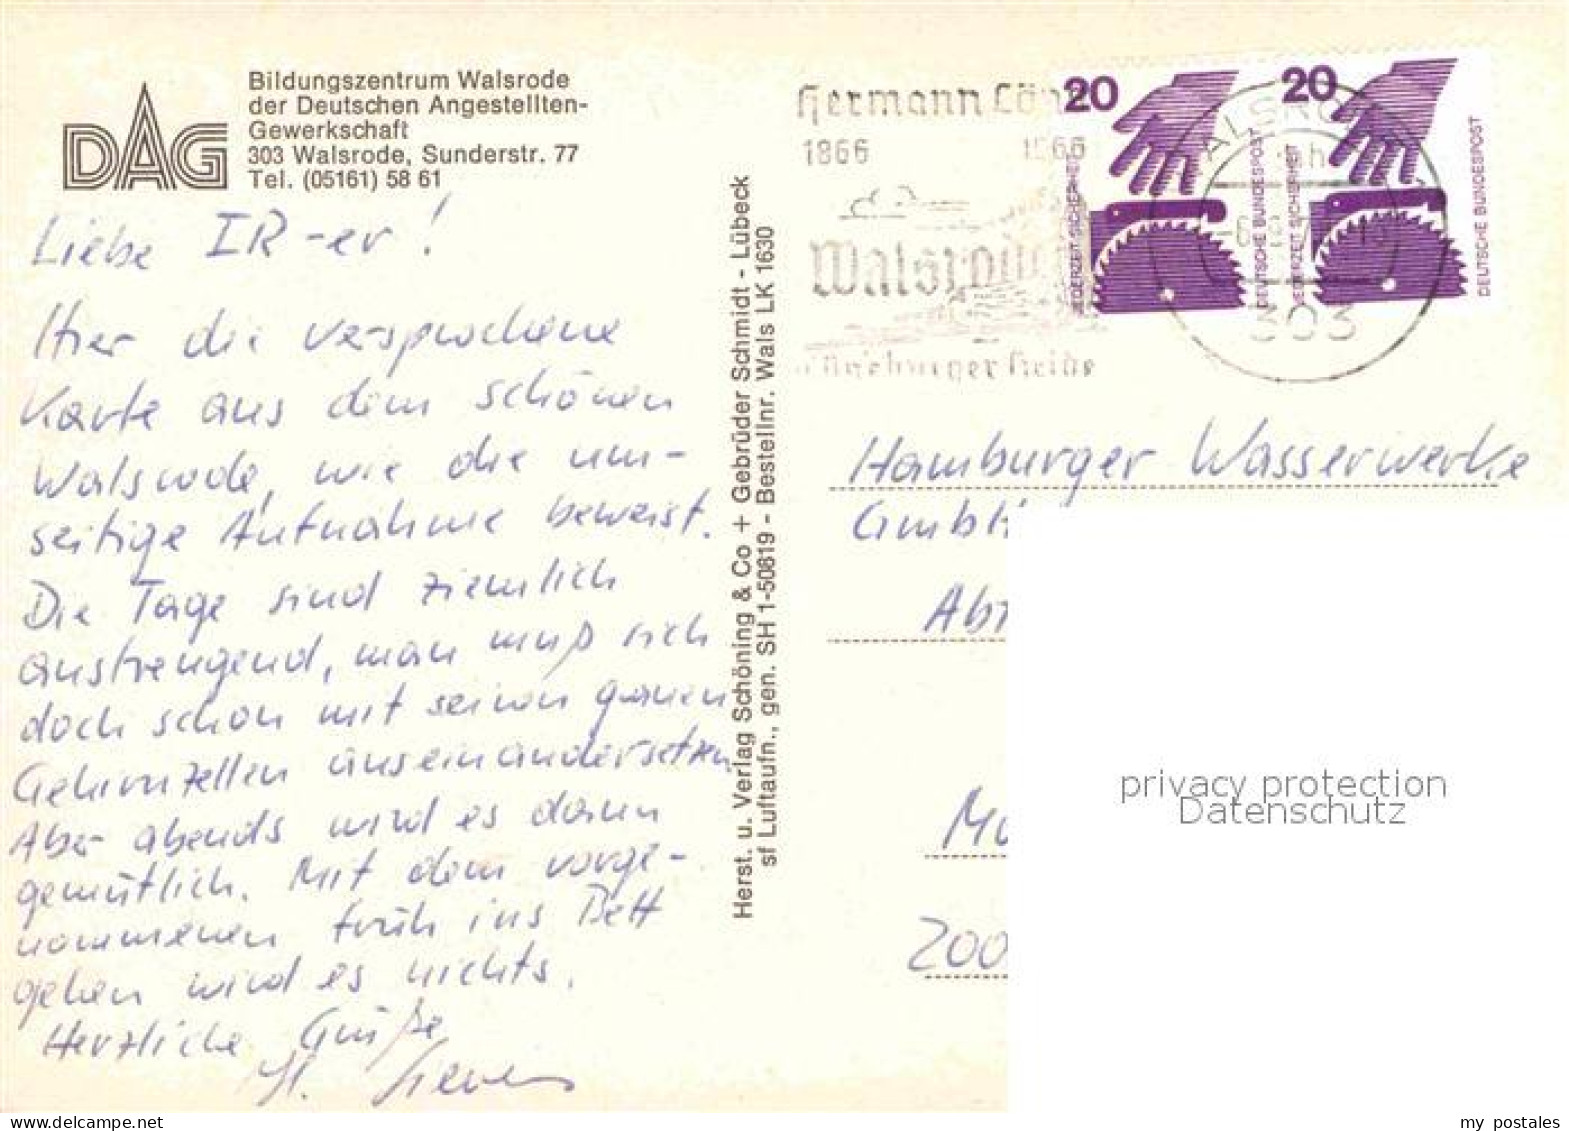 DAG
Bildungszentrum Walsrode
der Deutschen Angestellten-
Gewerkschaft
303 Walsrode, Sunderstr. 77
Tel. (05161) 58 61
Liebe IR-er!
Hier die versprochene
Karte aus dem schönen
Walsrode, wie die um-
seitige Aufnahme beweist.
Die Tage sind ziemlich
anstrengend, man muß sich
doch schon mit seinen grauen
Gehirnzellen auseinandersetzen.
Aber abends wird es dann
gemütlich. Mit dem vorge-
nommenen früh ins Bett
gehen wird es nichts.
Herzliche Grüße
H.
Herst. u. Verlag Schöning & Co + Gebrüder Schmidt - Lübeck
sf Luftaufn., gen. SH 1-50819 - Bestellnr. Wals LK 1630
Hermann Lön
1866 1966
Walsrode
Lüneburger Heide
20
JEDERZEIT SICHERHEIT
DEUTSCHE BUNDESPOST
20
JEDERZEIT SICHERHEIT
DEUTSCHE BUNDESPOST
WALSRODE
303
Hamburger Wasserwerke
GmbH
Abt
200
privacy protection
Datenschutz
my postales
www.delcampe.net